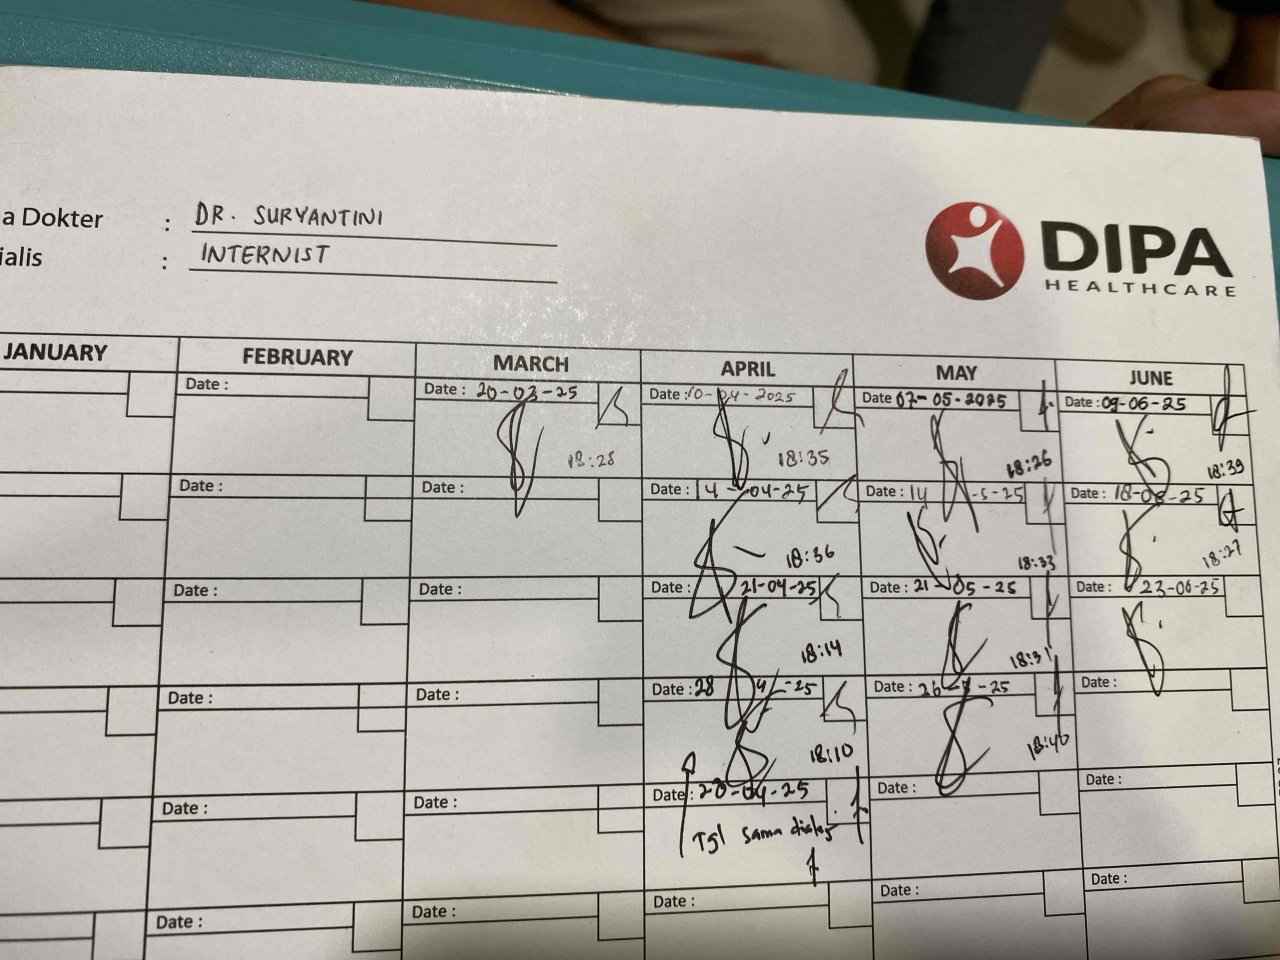 a Dokter : DR. SURYANTINI
ialis : INTERNIST
DIPA
HEALTHCARE
JANUARY FEBRUARY MARCH APRIL MAY JUNE
Date : Date : 20-03-25 Date : 10-04-2025 Date 07-05-2025 Date : 09-06-25
18:28 18:35 18:26 18:39
Date : Date : Date : 14-04-25 Date : 14-5-25 Date : 18-06-25
18:36 18:33 18:27
Date : Date : Date : 21-04-25 Date : 21-05-25 Date : 23-06-25
18:14 18:31
Date : Date : Date : 28 4-25 Date : 26- -25 Date :
18:10 18:40
Date : Date : Date : 28-04-25 Date : Date :
Tgl sama
Date : Date : Date : Date : Date :